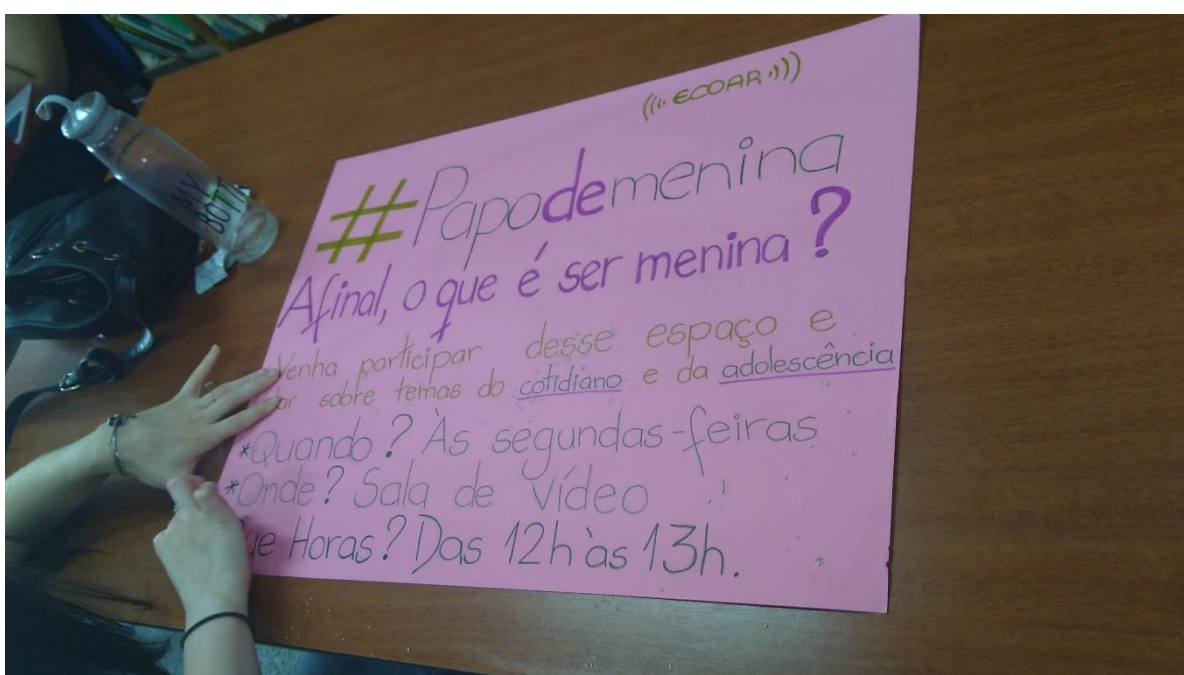 (((ECOAR)))
#Papodemenina
Afinal, o que é ser menina?
Venha participar desse espaço e
sobre temas do cotidiano e da adolescência
*Quando? Às segundas-feiras
*Onde? Sala de vídeo
Horas? Das 12h às 13h.
MY
BOTTLE